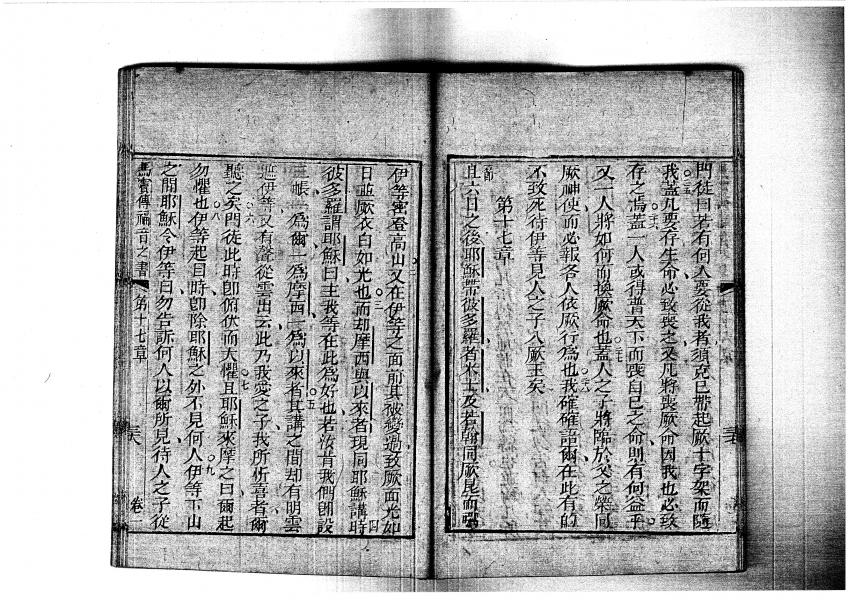 門徒曰若有何人要從我者須克己帶起厥十字架而隨
我蓋凡要存生命必致喪之又凡將喪厥命因我也必致
存之焉蓋一人或得普天下而喪自己之命則有何益乎
又一人將如何而換厥命也蓋人之子將臨於父之榮同
厥神使而必報各人依厥行為也我確確語爾在此有的
不致死待伊等見人之子入厥王矣
第十七章
且六日之後耶穌帶彼多羅者米士及若翰同厥昆而
伊等密登高山又在伊等之面前其被變過致厥面光如
日並厥衣白如光也而却摩西與以來者現同耶穌講時
彼多羅謂耶穌曰主我等在此為好也若汝肯我們卽設
三帳一為爾一為摩西一為以來者其講之間却有明雲
遮伊等又有聲從雲出云此乃我愛之子我所忻喜者爾
聽之矣門徒此時卽俯伏而大懼且耶穌來摩之曰爾起
勿懼也伊等起目時卽除耶穌之外不見何人伊等下山
之間耶穌令伊等曰勿告訴何人以爾所見待人之子從
馬竇傳福音之書 第十七章 卷一